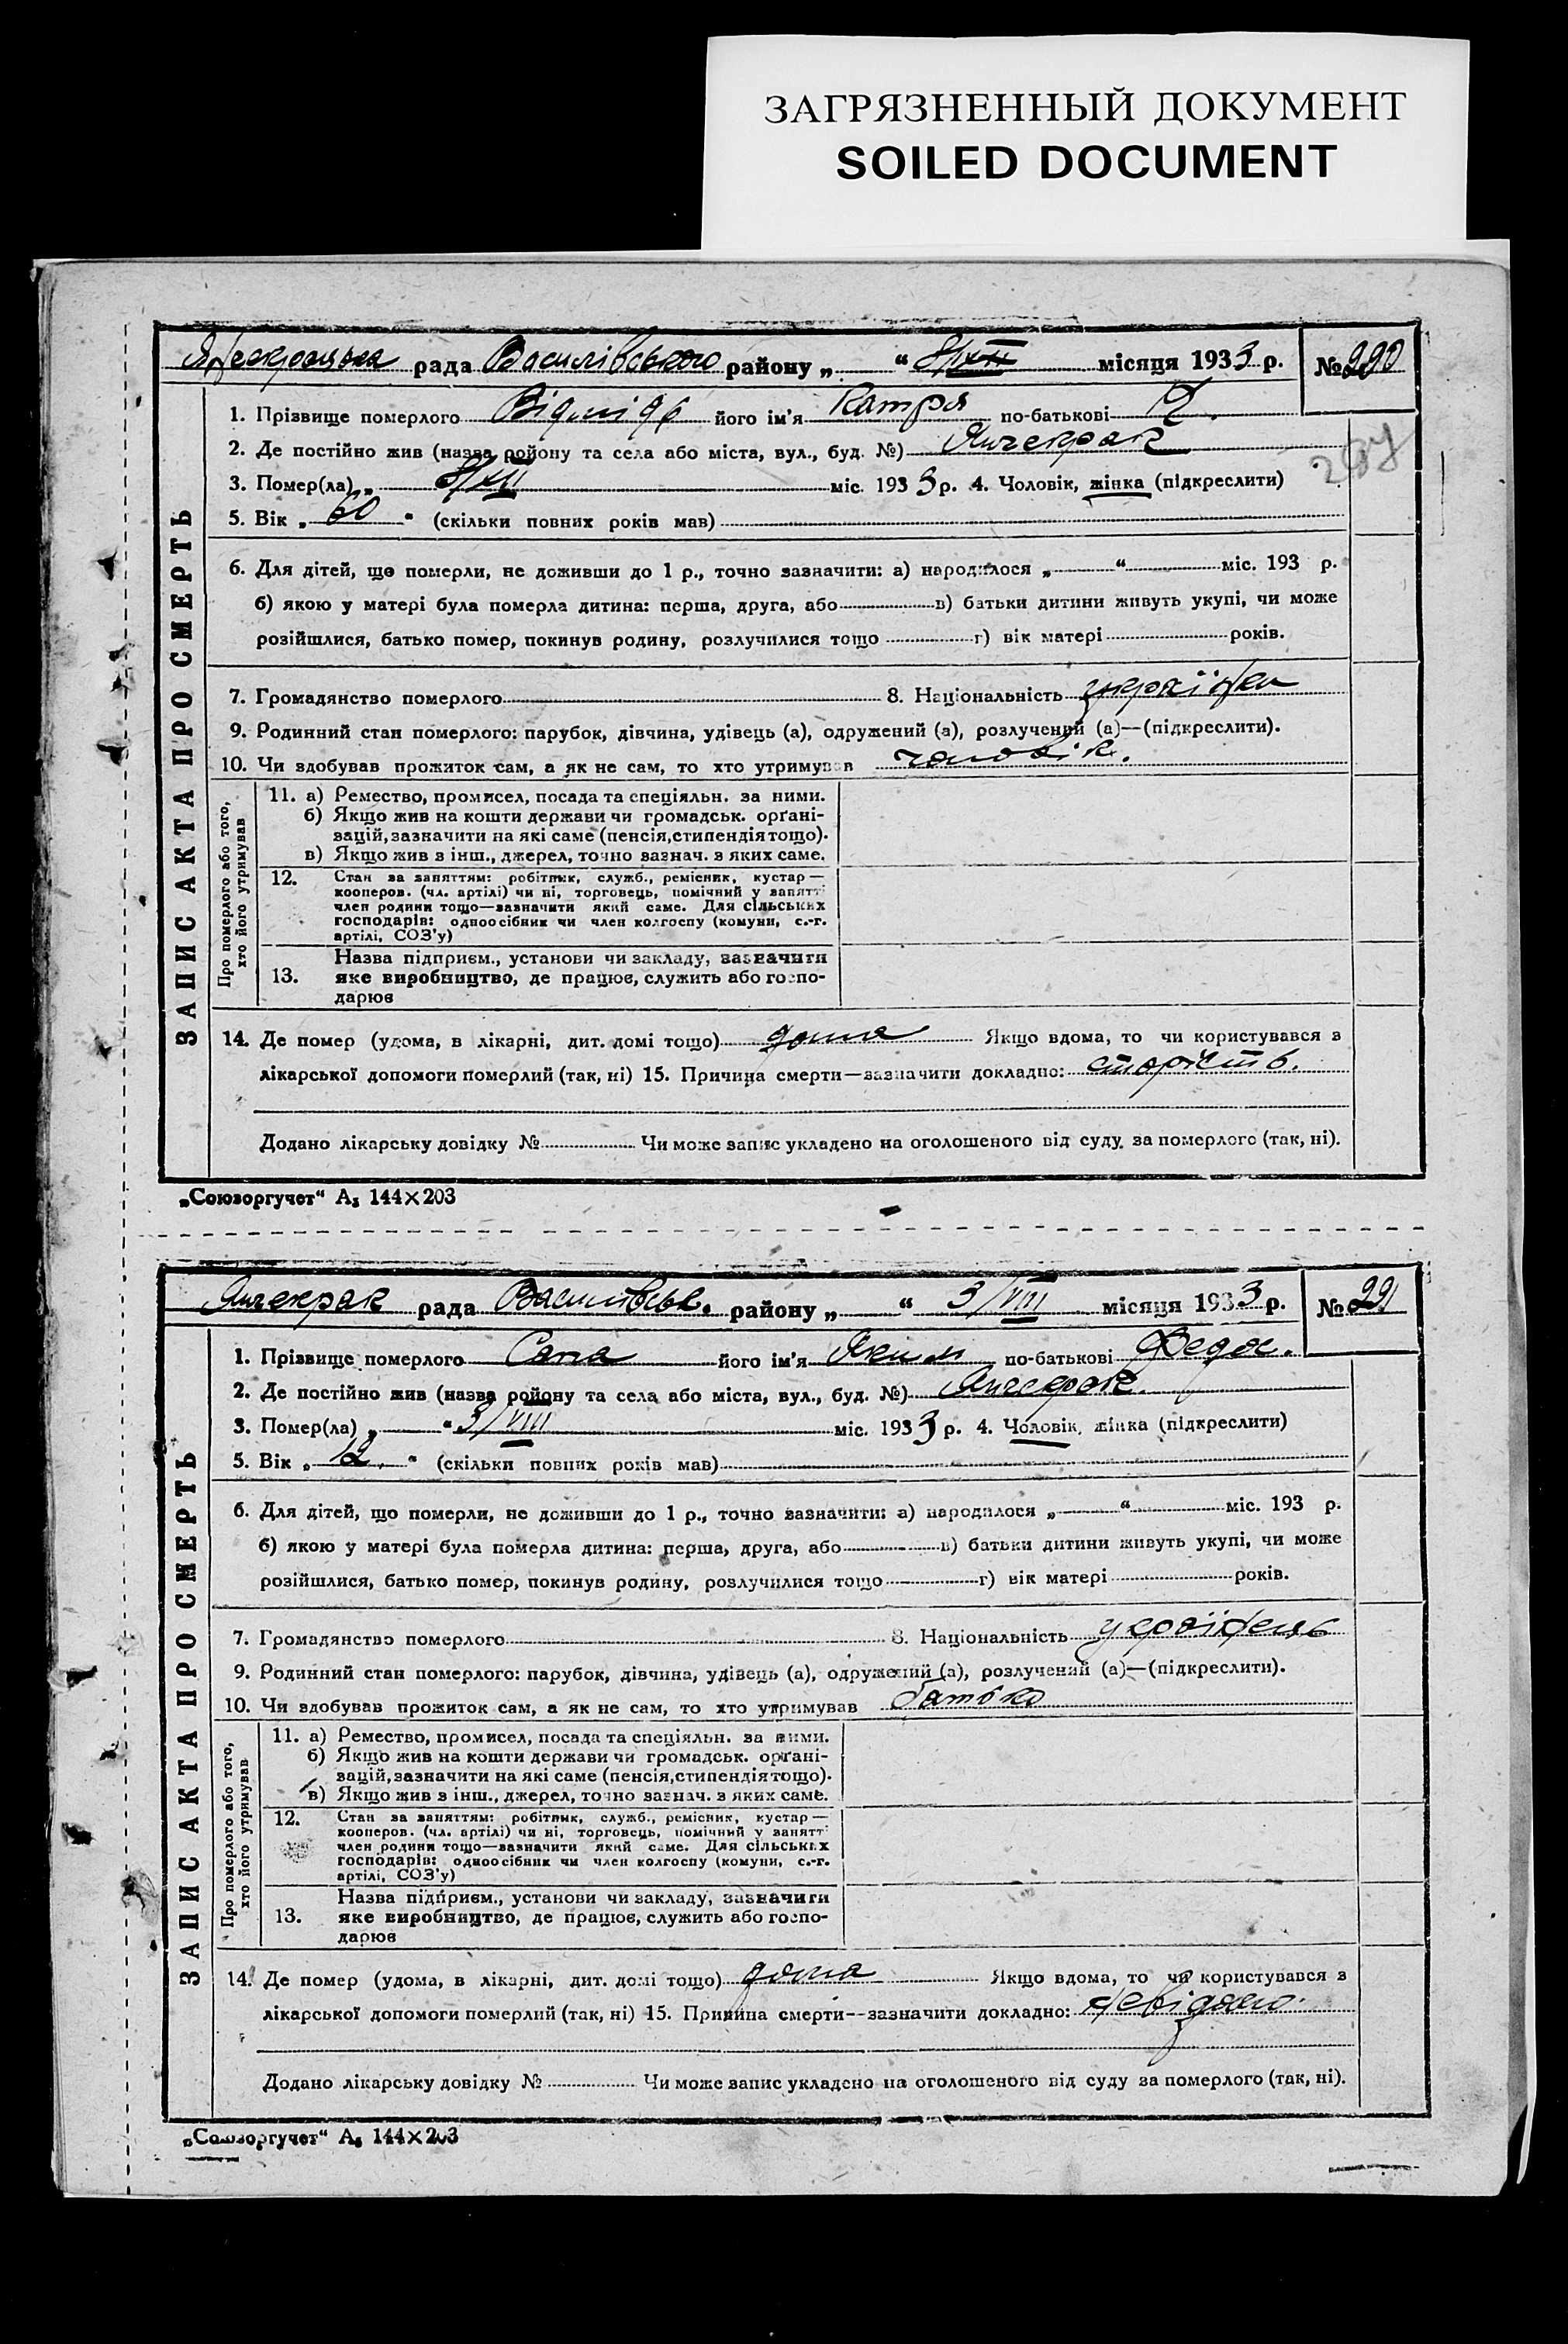 ЗАГРЯЗНЕННЫЙ ДОКУМЕНТ
SOILED DOCUMENT
рада Василівського району „ “ місяця 1933 р. № 290
1. Прізвище померлого його ім'я Катря по-батькові
2. Де постійно жив (назва ройону та села або міста, вул., буд. №) Янчекрак
287
3. Помер(ла) „ 8/XII міс. 1933 р. 4. Чоловік, жінка (підкреслити)
5. Вік „ 60 “ (скільки повних років мав)
6. Для дітей, що померли, не доживши до 1 р., точно зазначити: а) народилося „ “ міс. 193 р.
б) якою у матері була померла дитина: перша, друга, або в) батьки дитини живуть укупі, чи може
розійшлися, батько помер, покинув родину, розлучилися тощо г) вік матері років.
7. Громадянство померлого 8. Національність українка
9. Родинний стан померлого: парубок, дівчина, удівець (а), одружений (а), розлучений (а)—(підкреслити).
10. Чи здобував прожиток сам, а як не сам, то хто утримував чоловік.
ЗАПИС АКТА ПРО СМЕРТЬ
Про померлого або того,
хто його утримував
11. а) Ремество, промисел, посада та спеціяльн. за ними.
б) Якщо жив на кошти держави чи громадськ. орґані-
зацій, зазначити на які саме (пенсія, стипендія тощо).
в) Якщо жив з інш., джерел, точно зазнач. з яких саме.
12. Стан за заняттям: робітник, служб., ремісник, кустар—
кооперов. (чл. артілі) чи ні, торговець, помічний у занятті
член родини тощо—зазначити який саме. Для сільських
господарів: одноосібник чи член колгоспу (комуни, с.-г.
артілі, СОЗ'у)
Назва підприєм., установи чи закладу, зазначити
13. яке виробництво, де працює, служить або госпо-
дарює
14. Де помер (удома, в лікарні, дит. домі тощо) дома Якщо вдома, то чи користувався з
лікарської допомоги померлий (так, ні) 15. Причина смерти—зазначити докладно: старість.
Додано лікарську довідку № Чи може запис укладено на оголошеного від суду за померлого (так, ні).
„Союзоргучет“ А₅ 144×203
Янчекрак рада Василівськ. району „ “ 3/VIII місяця 1933 р. № 291
1. Прізвище померлого Сапа його ім'я Яким по-батькові Федос.
2. Де постійно жив (назва ройону та села або міста, вул., буд. №) Янчекрак.
3. Помер(ла) „ “ 3/VIII міс. 1933 р. 4. Чоловік, жінка (підкреслити)
5. Вік „ 12. “ (скільки повних років мав)
6. Для дітей, що померли, не доживши до 1 р., точно зазначити: а) народилося „ “ міс. 193 р.
б) якою у матері була померла дитина: перша, друга, або в) батьки дитини живуть укупі, чи може
розійшлися, батько помер, покинув родину, розлучилися тощо г) вік матері років.
7. Громадянство померлого 8. Національність українець
9. Родинний стан померлого: парубок, дівчина, удівець (а), одружений (а), розлучений (а)—(підкреслити).
10. Чи здобував прожиток сам, а як не сам, то хто утримував батько
ЗАПИС АКТА ПРО СМЕРТЬ
Про померлого або того,
хто його утримував
11. а) Ремество, промисел, посада та спеціяльн. за ними.
б) Якщо жив на кошти держави чи громадськ. орґані-
зацій, зазначити на які саме (пенсія, стипендія тощо).
в) Якщо жив з інш., джерел, точно зазнач. з яких саме.
12. Стан за заняттям: робітник, служб., ремісник, кустар—
кооперов. (чл. артілі) чи ні, торговець, помічний у занятті
член родини тощо—зазначити який саме. Для сільських
господарів: одноосібник чи член колгоспу (комуни, с.-г.
артілі, СОЗ'у)
Назва підприєм., установи чи закладу, зазначити
13. яке виробництво, де працює, служить або госпо-
дарює
14. Де помер (удома, в лікарні, дит. домі тощо) дома Якщо вдома, то чи користувався з
лікарської допомоги померлий (так, ні) 15. Причина смерти—зазначити докладно: невідомо.
Додано лікарську довідку № Чи може запис укладено на оголошеного від суду за померлого (так, ні).
„Союзоргучет“ А₅ 144×203